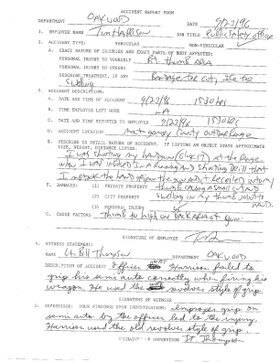 ACCIDENT REPORT FORM
DEPARTMENT OAKWOOD DATE 9/22/96
1. EMPLOYEE NAME Tim Harrison JOB TITLE Public Safety officer
2. ACCIDENT TYPE: VEHICULAR NON-VEHICULAR
A. EXACT NATURE OF INJURIES AND EXACT PARTS OF BODY AFFECTED:
PERSONAL INJURY TO YOURSELF Rt thumb
PERSONAL INJURY TO OTHERS
DESCRIBE TREATMENT, IF ANY Bandage for cut, Ice for
Swelling
3. ACCIDENT DESCRIPTION:
A. DATE AND TIME OF ACCIDENT 9/22/96 1530 hrs
B. TIME EMPLOYEE LEFT WORK
C. DATE AND TIME REPORTED TO EMPLOYER 9/22/96 1530 hrs
D. ACCIDENT LOCATION Montgomery County outdoor Range
E. DESCRIBE IN DETAIL NATURE OF ACCIDENT. IF LIFTING AN OBJECT STATE APPROXIMATE
SIZE, WEIGHT, DISTANCE LIFTED.
I was shooting my handgun at the Range
when I was involved in a shooting Drill that
I the hand gun and received injury
F. DAMAGES: (1) PRIVATE PROPERTY
(2) CITY PROPERTY
(3) PERSONAL INJURY
G. CAUSE FACTORS Thumb to high on back of gun
SIGNATURE OF EMPLOYEE
4. WITNESS STATEMENT:
NAME Lt. Bill Thompson DEPARTMENT OAKWOOD
DESCRIPTION OF ACCIDENT officer Harrison failed to
grip his semi auto correctly while firing his
weapon. He used the revolver style of grip.
SIGNATURE OF WITNESS
5. SUPERVISOR: YOUR FINDINGS UPON INVESTIGATION: Improper grip on
semi auto by the officer led to the injury.
Harrison used the old revolver style of grip.
SIGNATURE OF SUPERVISOR Lt Thompson